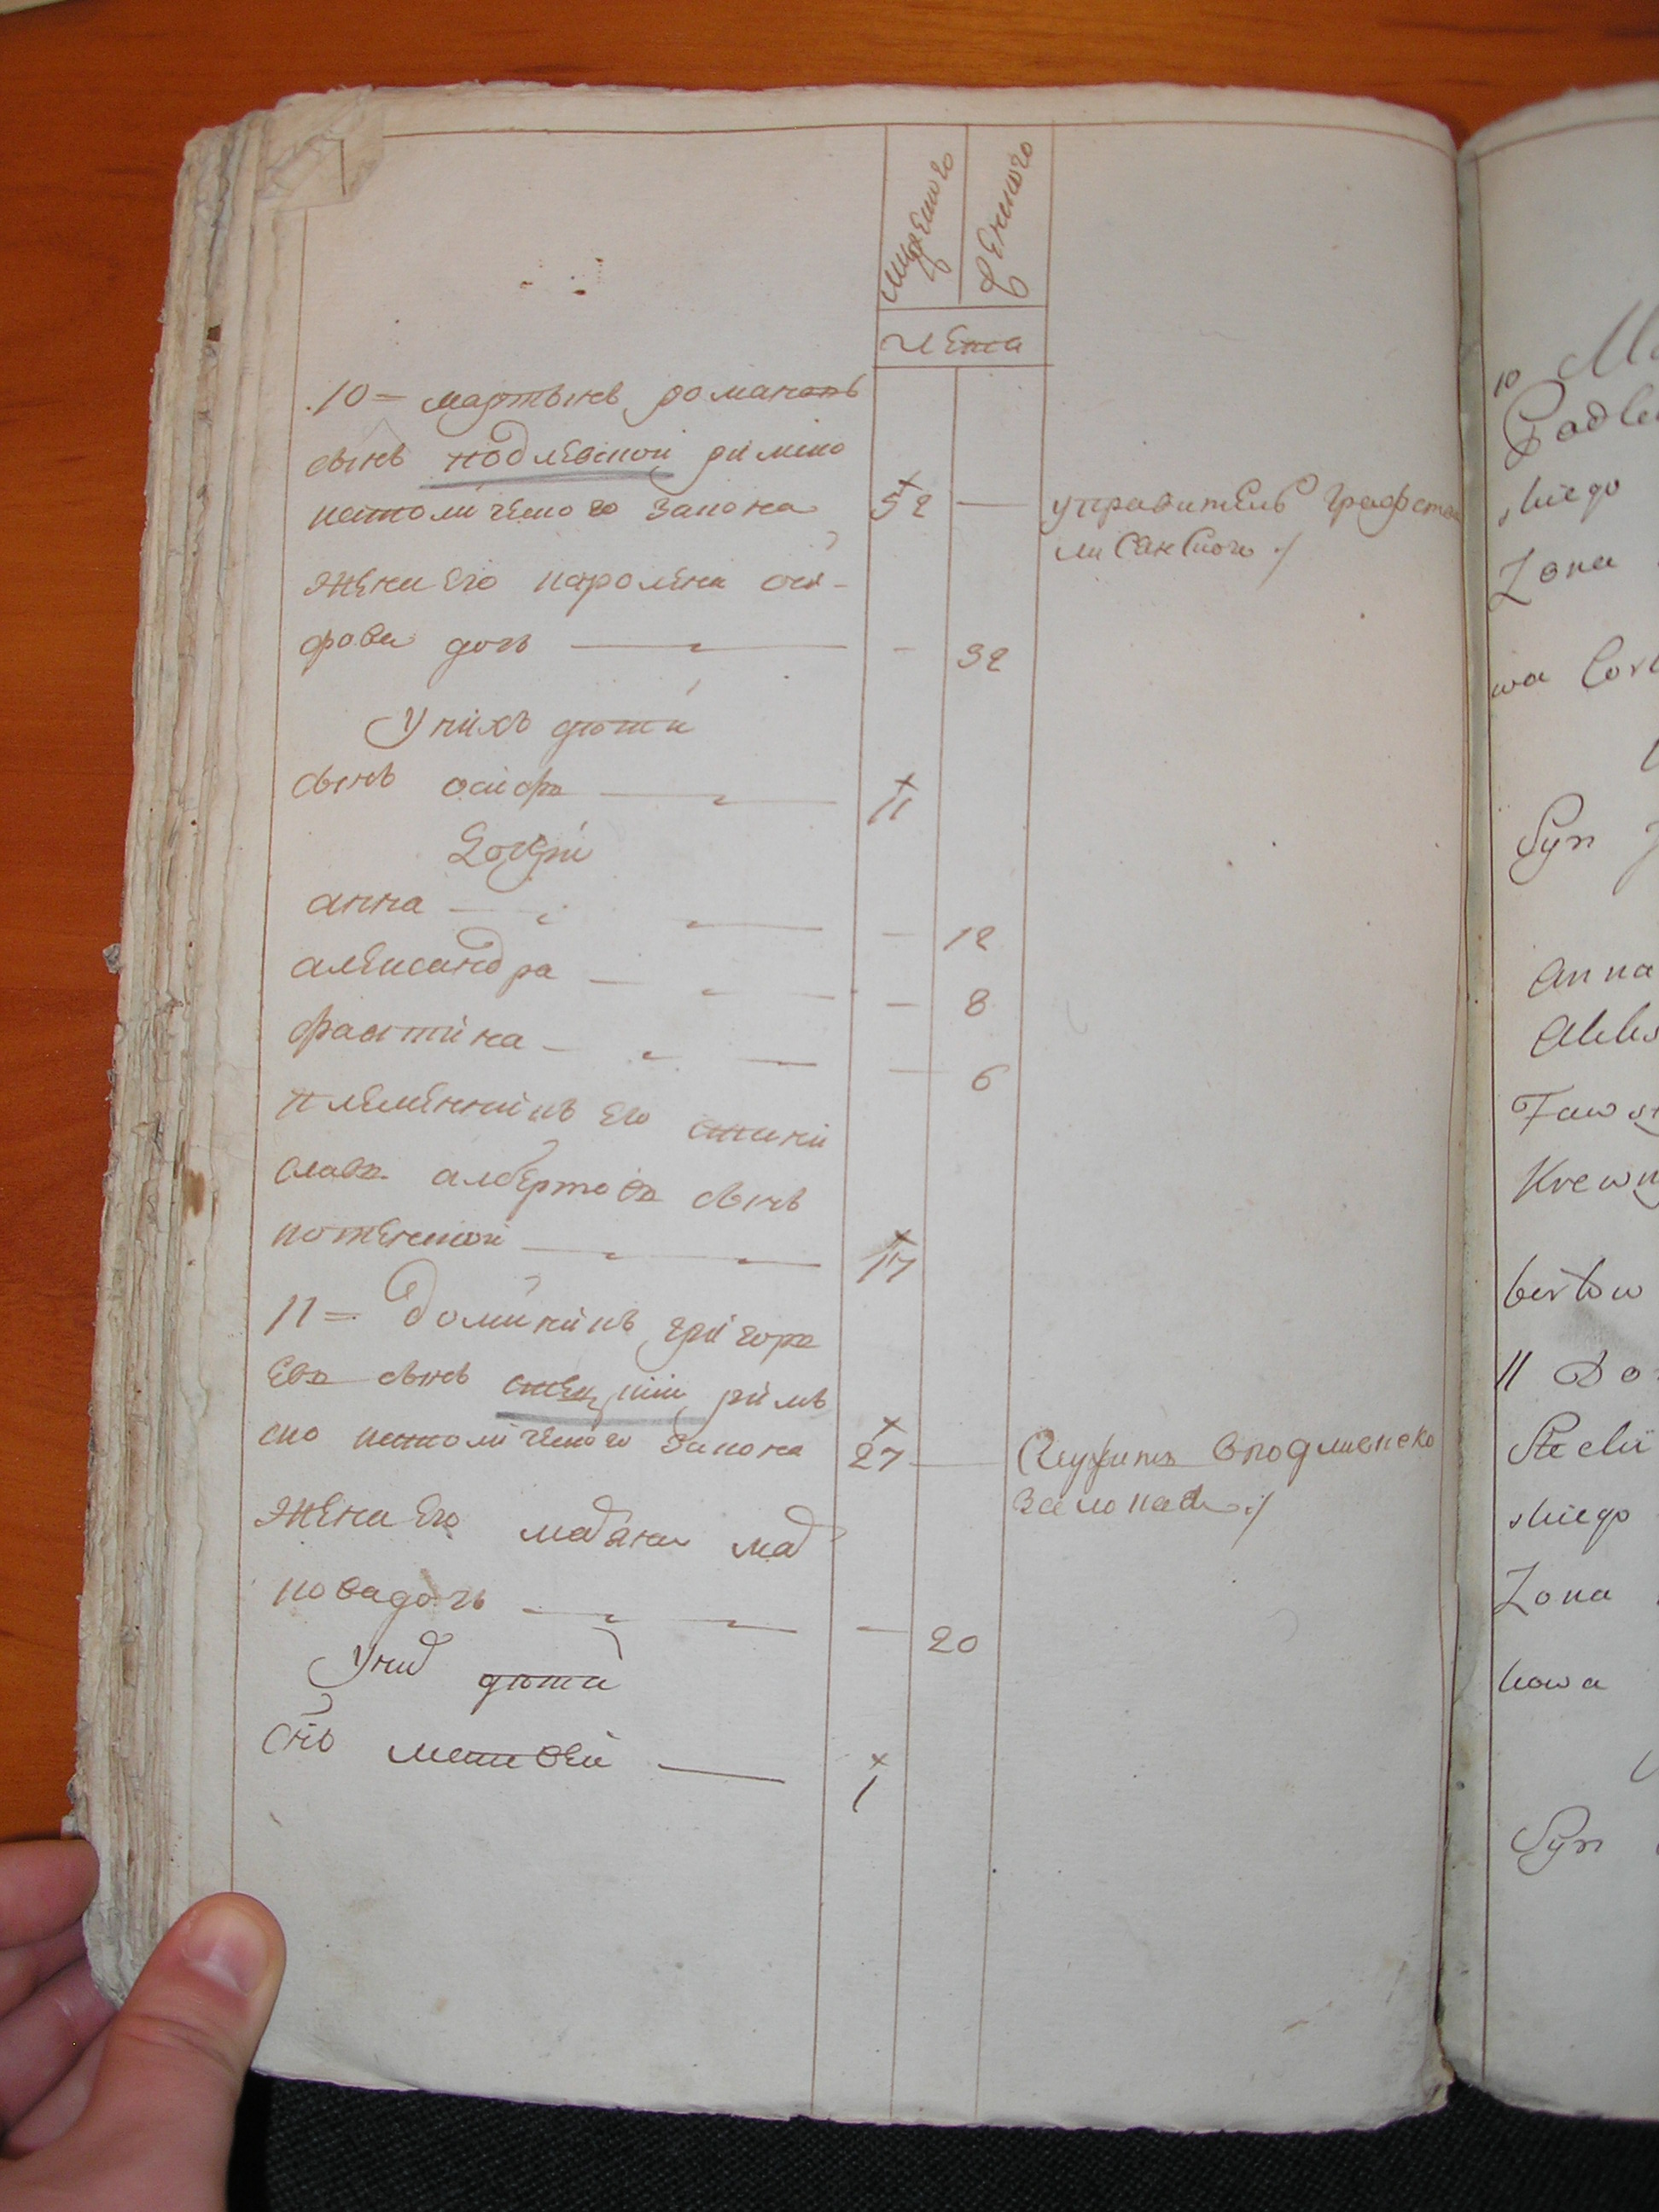 мужеского
женского
лета
10 = мартынъ романовъ
сынъ подлевской римско
католическаго закона 52 — управитель графства
ми
жена его каролина оси-
фова дочь — - 32
У нихъ дѣти
сынъ осифъ — 11
Дочери
анна — - 12
александра — - 8
фаустина — - 6
племенникъ его стани
славъ албертовъ сынъ
17
11 = доминикъ григорь
евъ сынъ римъ
ско католическаго закона 27 — Служитъ
жена его
кова дочь — - 20
У них дѣти
снъ матвей — 1
10 M
Podle
skiego
Zona
wa Cor
Syn J
Anna
Aleks
Faws
Krewn
bertow
11 Do
Stecki
skiego
Zona
kowa
Syn